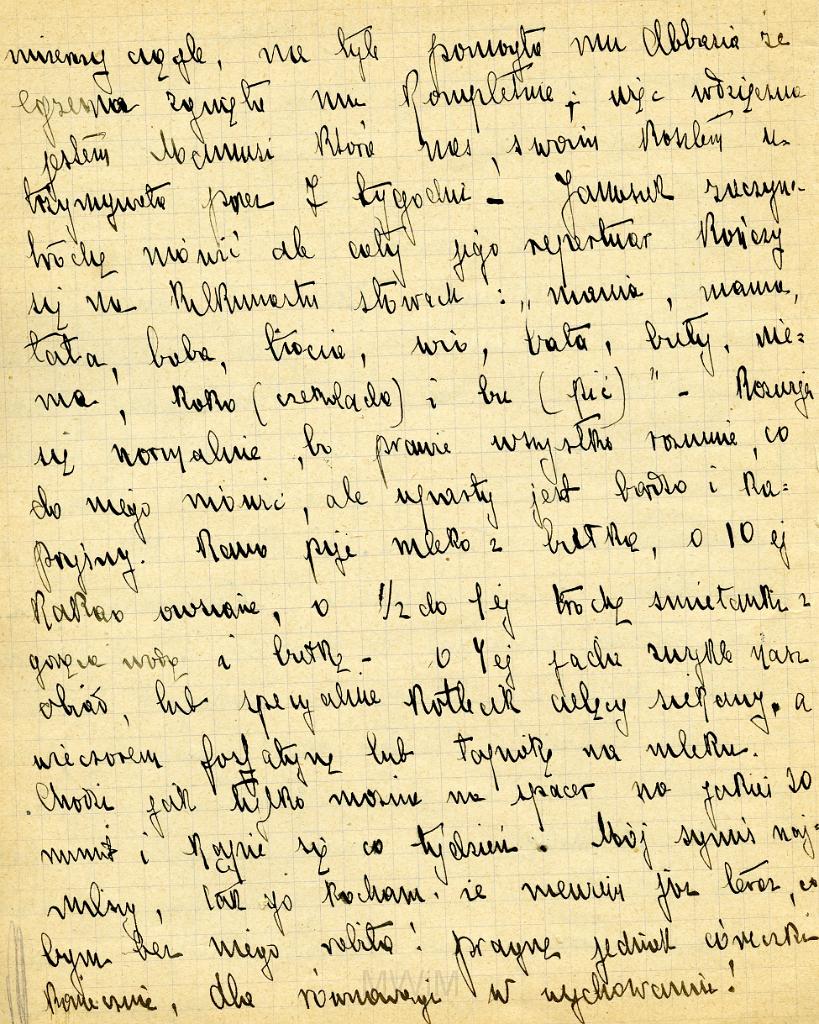 ciągle, na tyle pomogła mu Abbazia że
egzema zginęła mu kompletnie; więc wdzięczna
jestem Mamusi która nas, swoim kosztem u-
trzymywała przez 7 tygodni - Januszek zaczyn.
trochę mówić ale cały jego repertuar kończy
się na kilkunastu słowach: „mania, mama,
tata, baba, ciocia, wio, lala, buty, nie=
ma, koko (czekolada) i bu (pić)" - Rozwija
się normalnie, bo prawie wszystko rozumie, co
do niego mówić, ale uparty jest bardzo i ka=
pryśny. Rano pije mleko z bułką, o 10 ej
kakao owsiane, o 1/2 do 1ej trochę śmietanki z
gorącą wodą i bułkę - O 4ej jada zwykle nasz
obiad, lub specjalnie kotlecik cielęcy siekany, a
wieczorem fosfatynę lub tapiokę na mleku.
Chodzi jak tylko można na spacer na jakieś 20
minut i kąpie się co tydzień. Mój synuś naj=
milszy, tak go kocham. że niewiem już teraz, co
bym bez niego robiła! pragnę jednak córeczki
koniecznie, dla równowagi w wychowaniu!
MWM